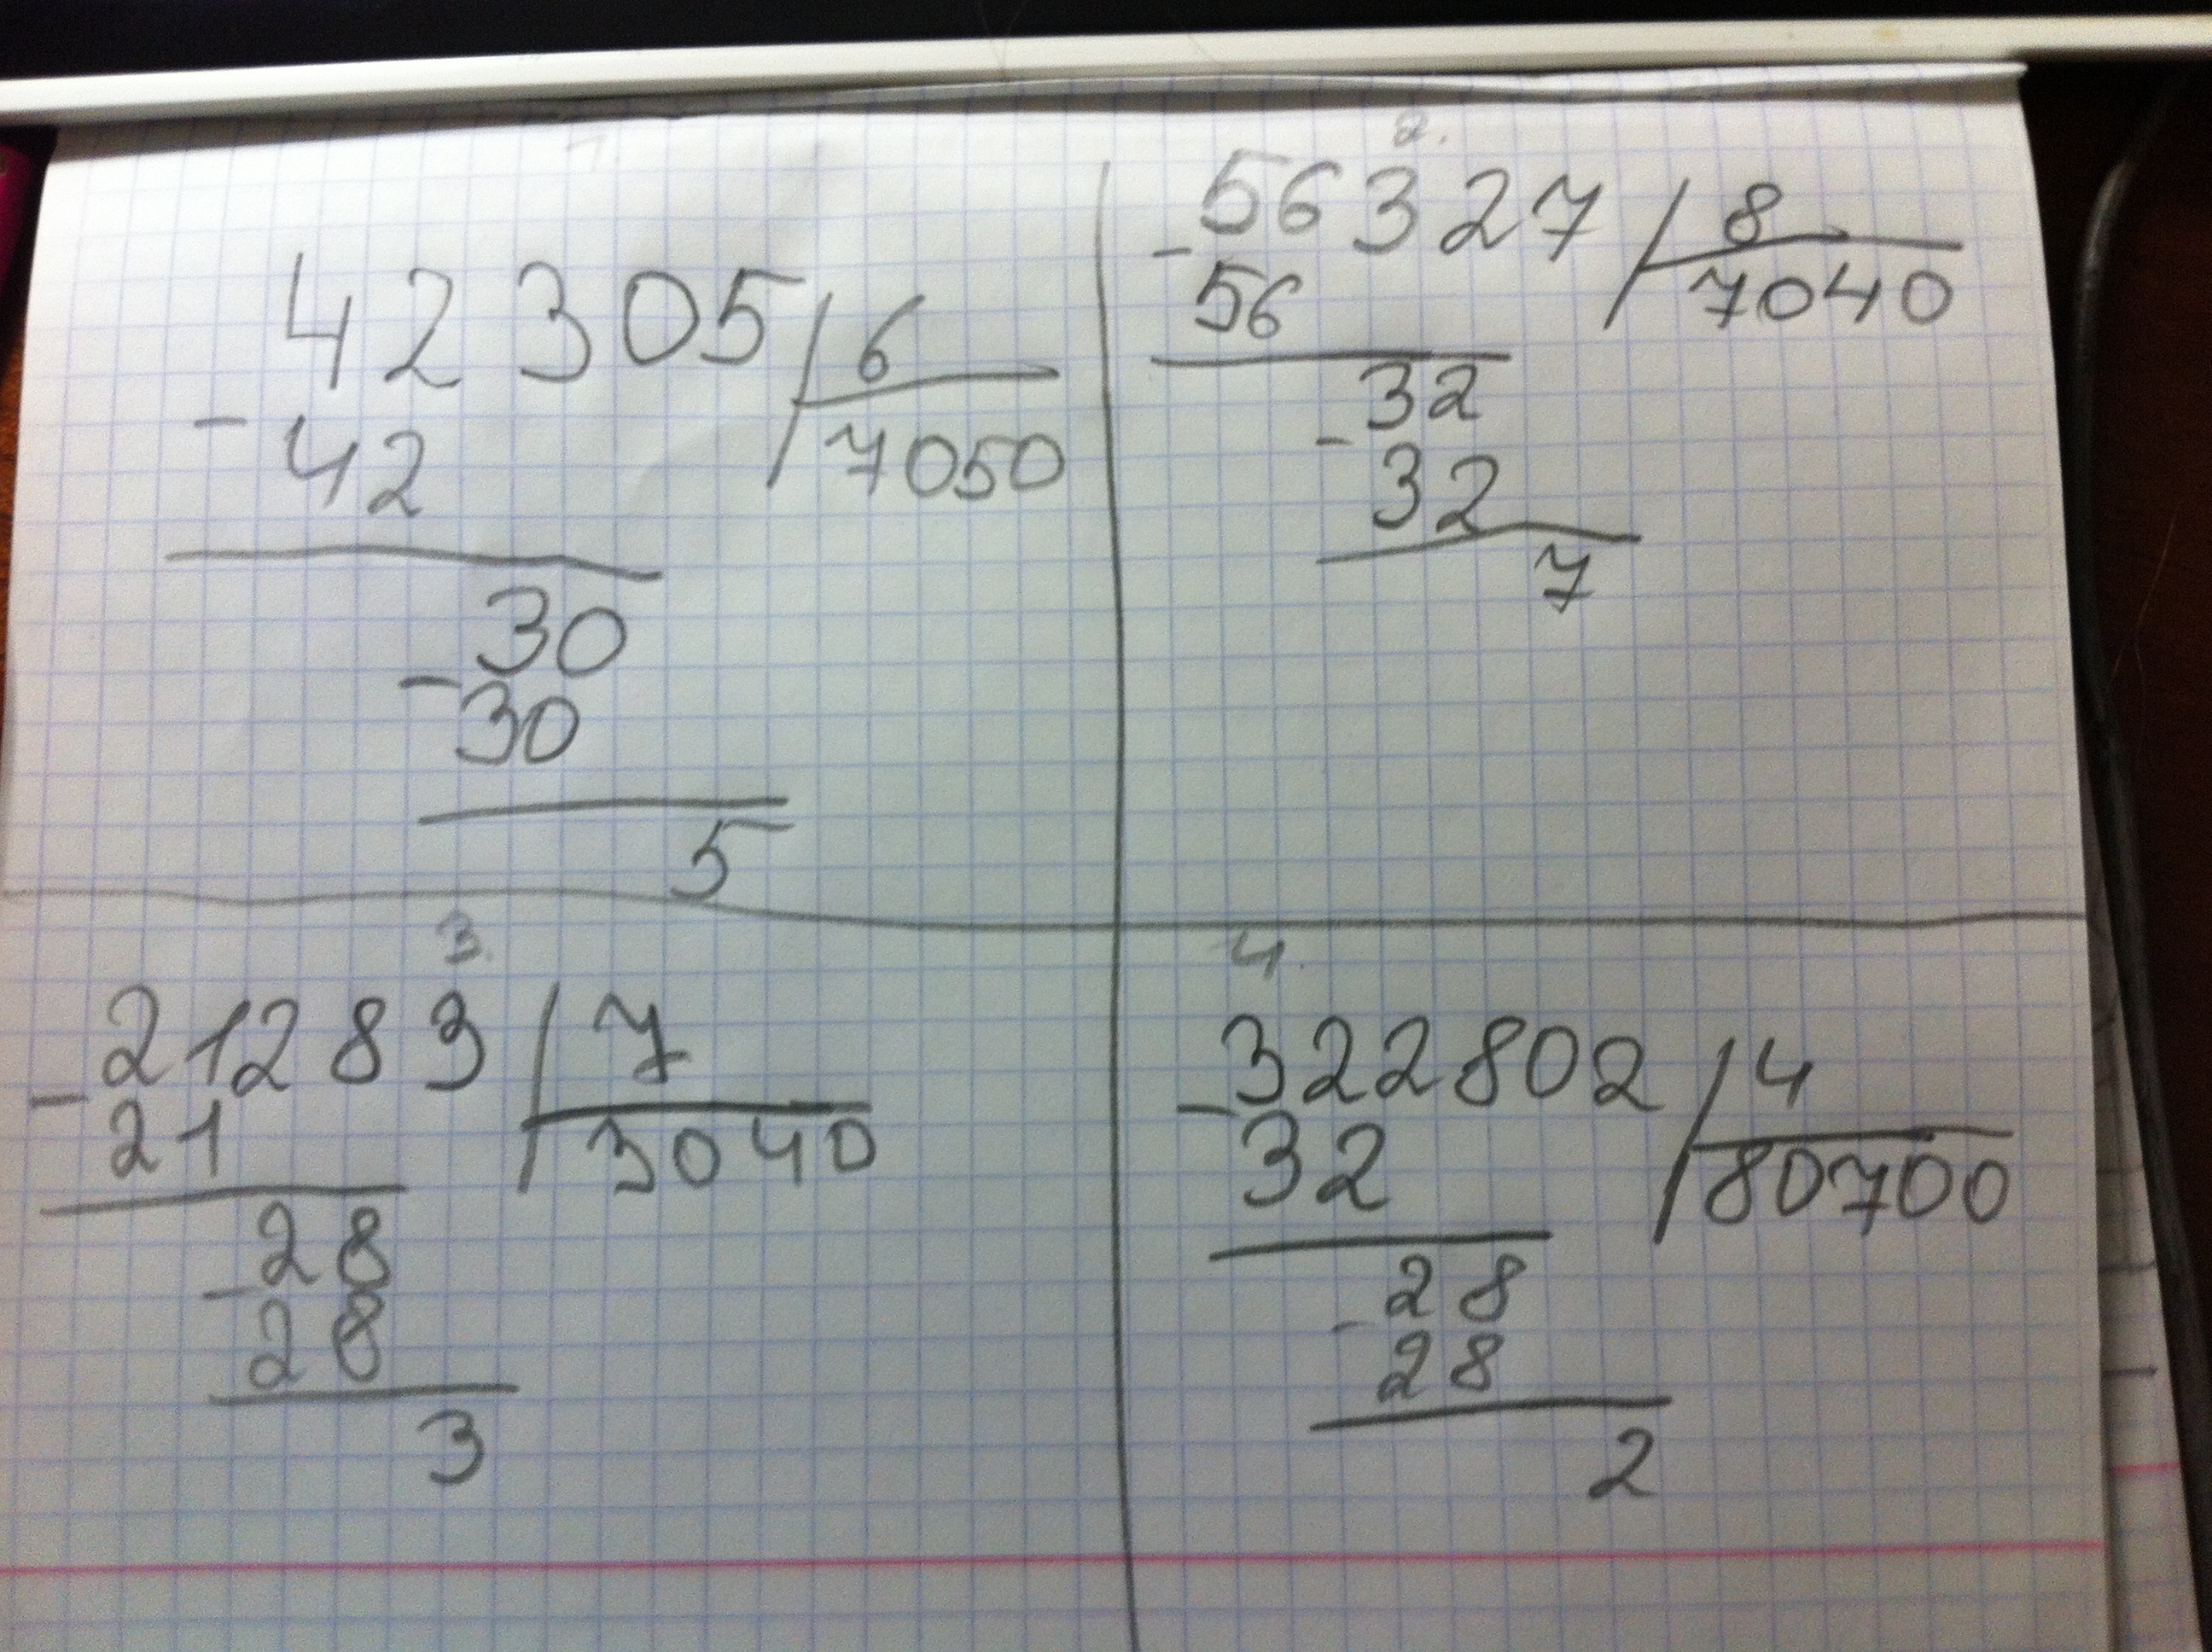 1.
42305 6
- 42 7050
30
- 30
5
2.
- 56327 8
56 7040
32
- 32
7
3.
- 21283 7
21 3040
- 28
28
3
4.
- 322802 4
32 80700
- 28
28
2